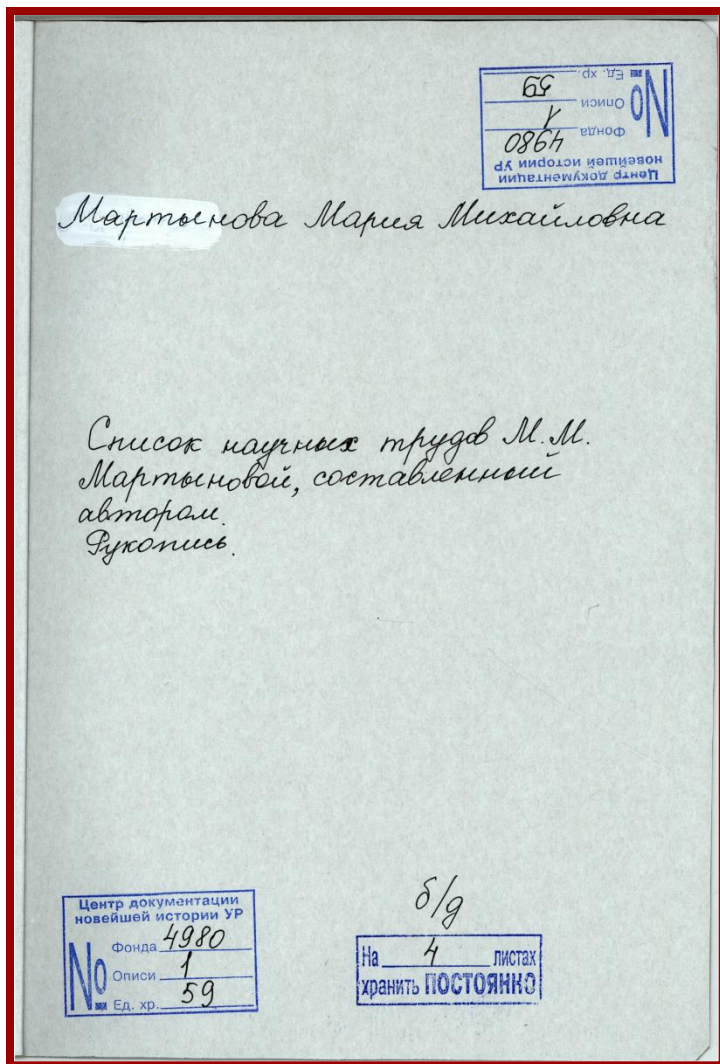 Центр документации
новейшей истории УР
№ Фонда 4980
Описи 1
Ед. хр. 59
Мартынова Мария Михайловна
Список научных трудов М.М.
Мартыновой, составленный
автором.
Рукопись.
б/д
Центр документации
новейшей истории УР
№ Фонда 4980
Описи 1
Ед. хр. 59
На 4 листах
хранить ПОСТОЯННО